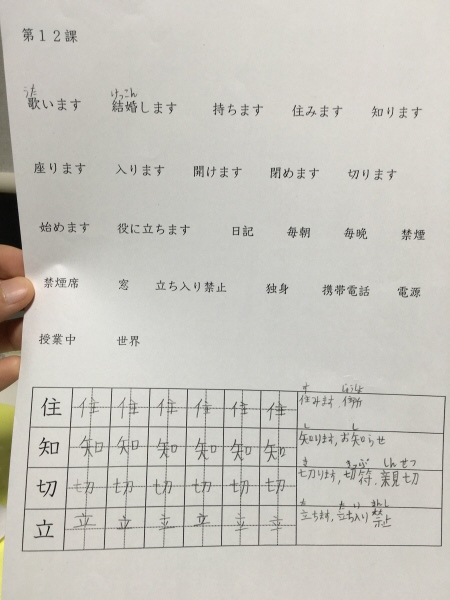 第12課
うた けっこん
歌います 結婚します 持ちます 住みます 知ります
座ります 入ります 開けます 閉めます 切ります
始めます 役に立ちます 日記 毎朝 毎晩 禁煙
禁煙席 窓 立ち入り禁止 独身 携帯電話 電源
授業中 世界
す じゅうしょ
住 住 住 住 住 住 住 住みます、住所
し し
知 知 知 知 知 知 知 知ります、お知らせ
き きっぷ しんせつ
切 切 切 切 切 切 切 切ります、切符、親切
た た い きんし
立 立 立 立 立 立 立 立ちます、立ち入り禁止